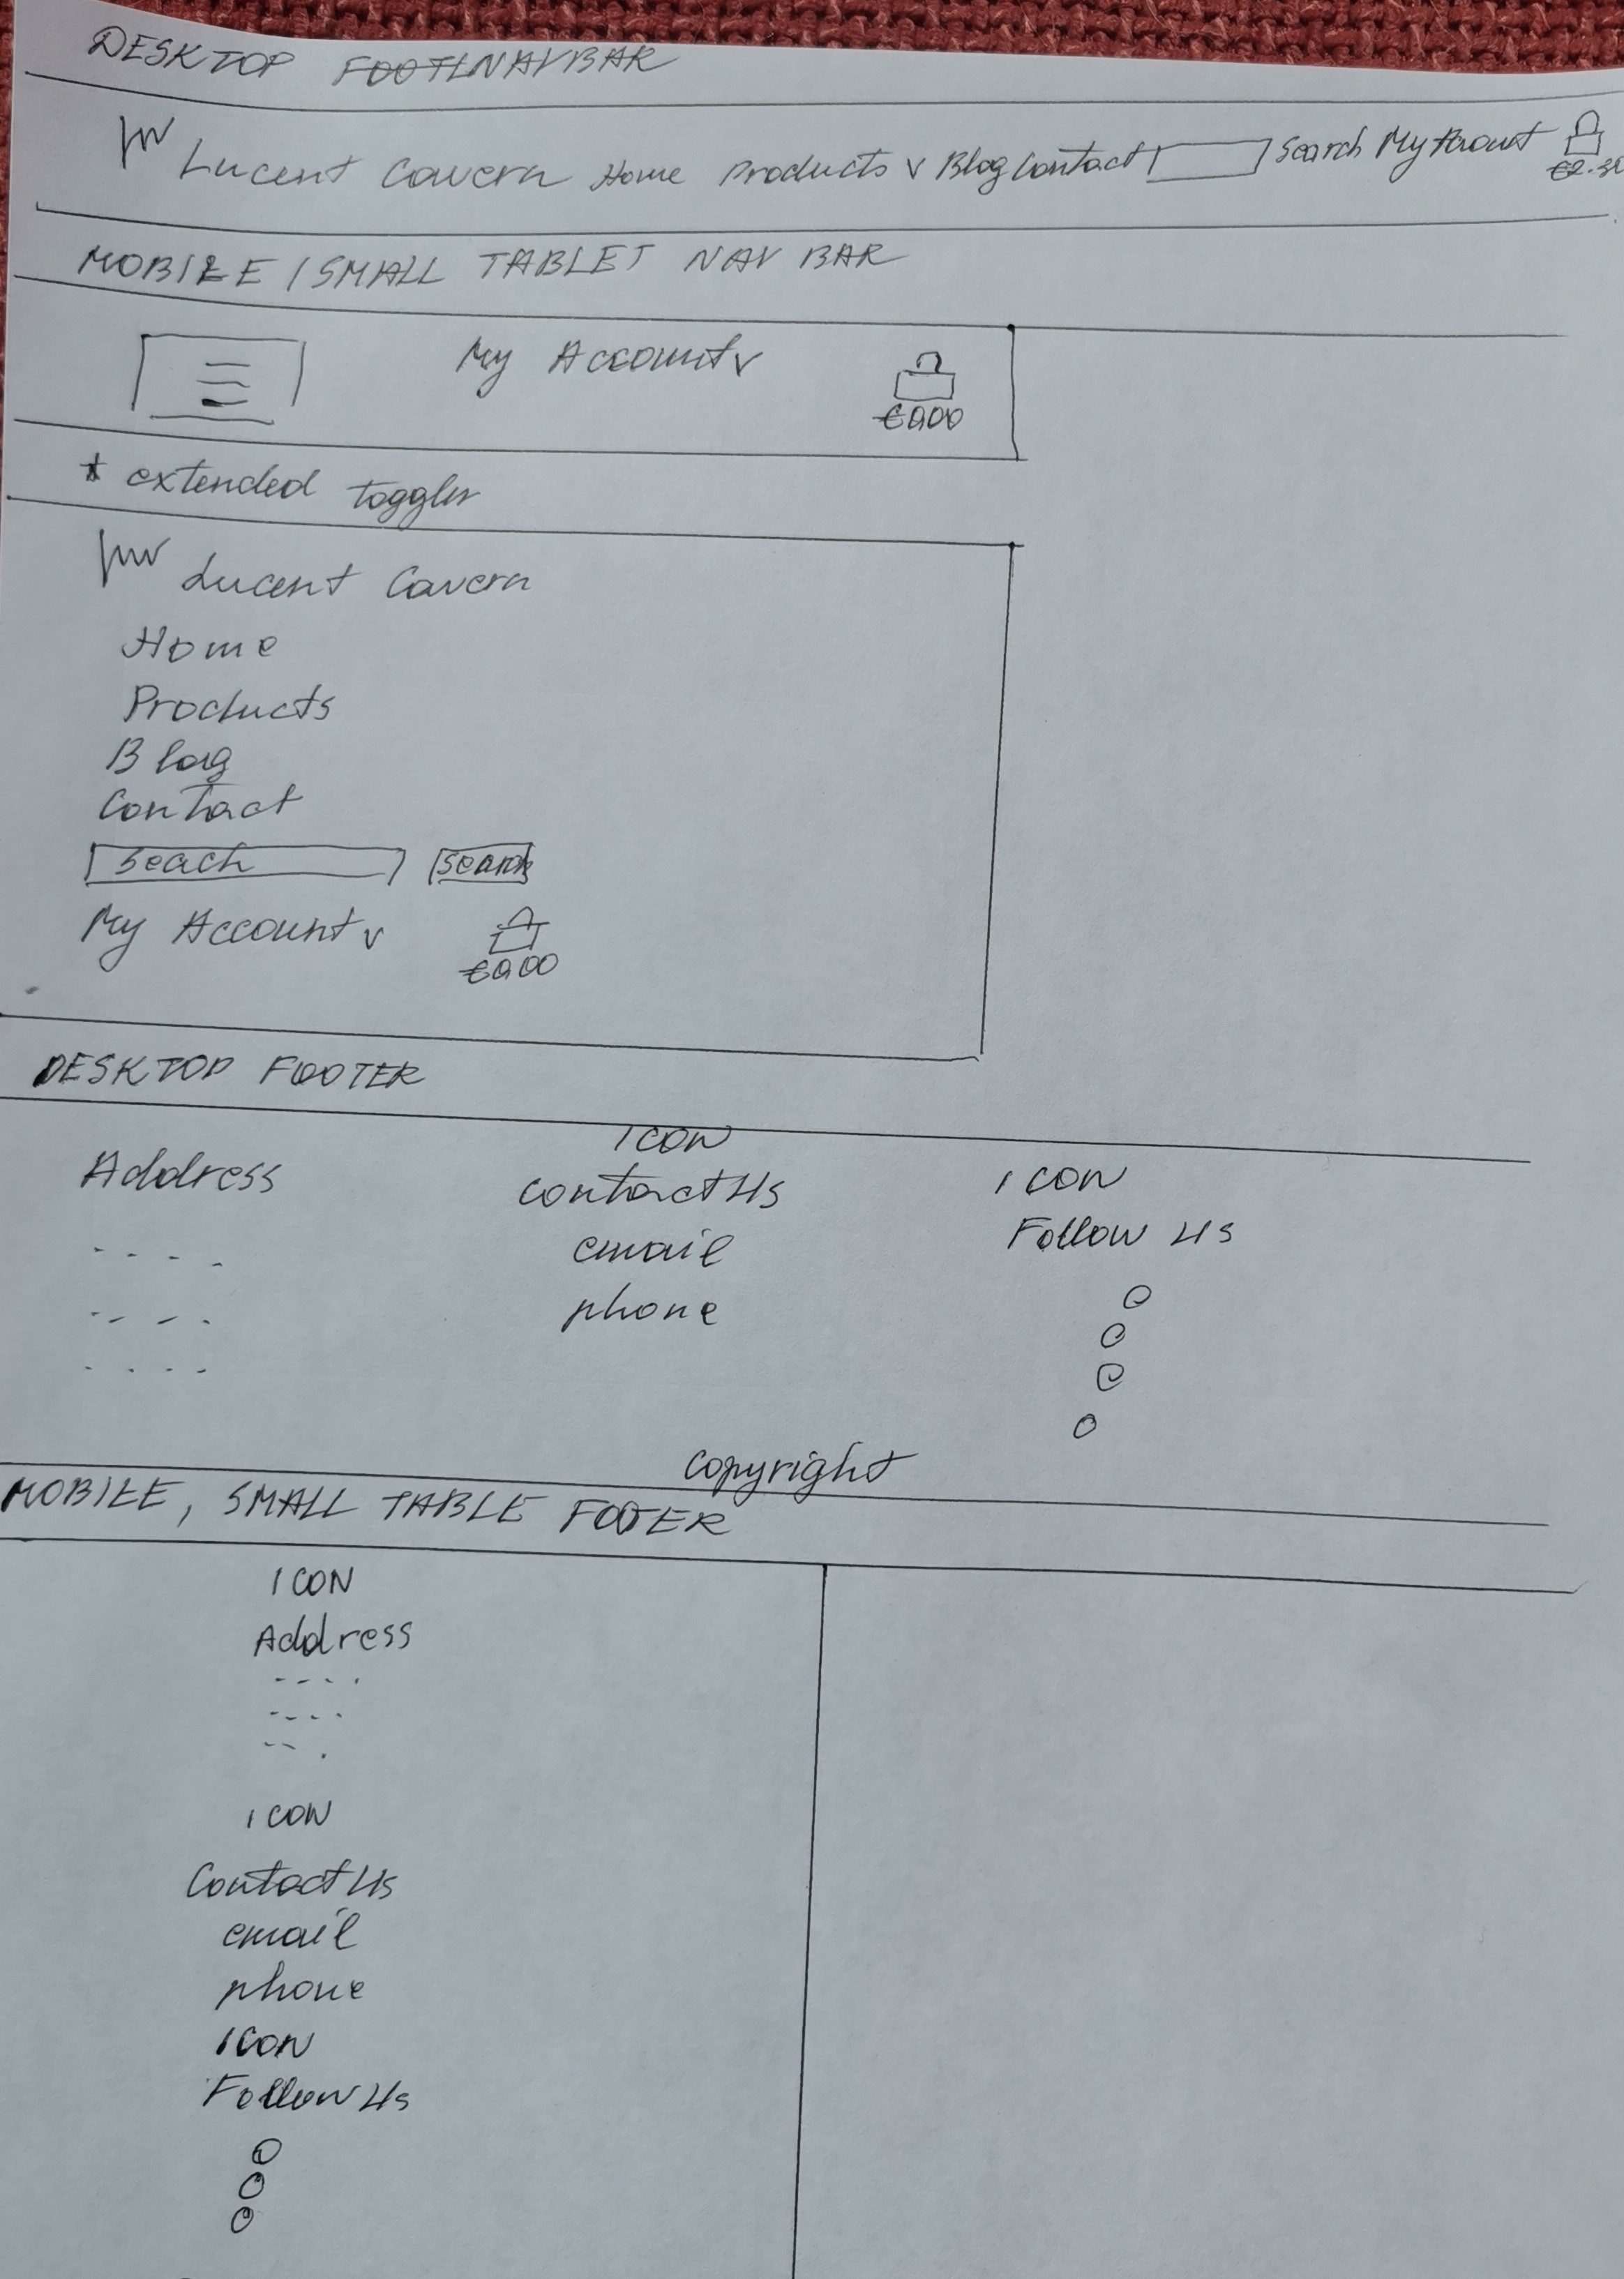 DESKTOP NAVBAR
Lucent Cavern Home Products v Blog Contact Search My Acount
MOBILE / SMALL TABLET NAV BAR
My Account v
€0.00
* extended toggler
Lucent Cavern
Home
Products
Blog
Contact
Seach Search
My Account v
€0.00
DESKTOP FOOTER
Address
ICON
Contact Us
email
phone
ICON
Follow Us
Copyright
MOBILE, SMALL TABLE FOOTER
ICON
Address
ICON
Contact Us
email
phone
ICON
Follow Us